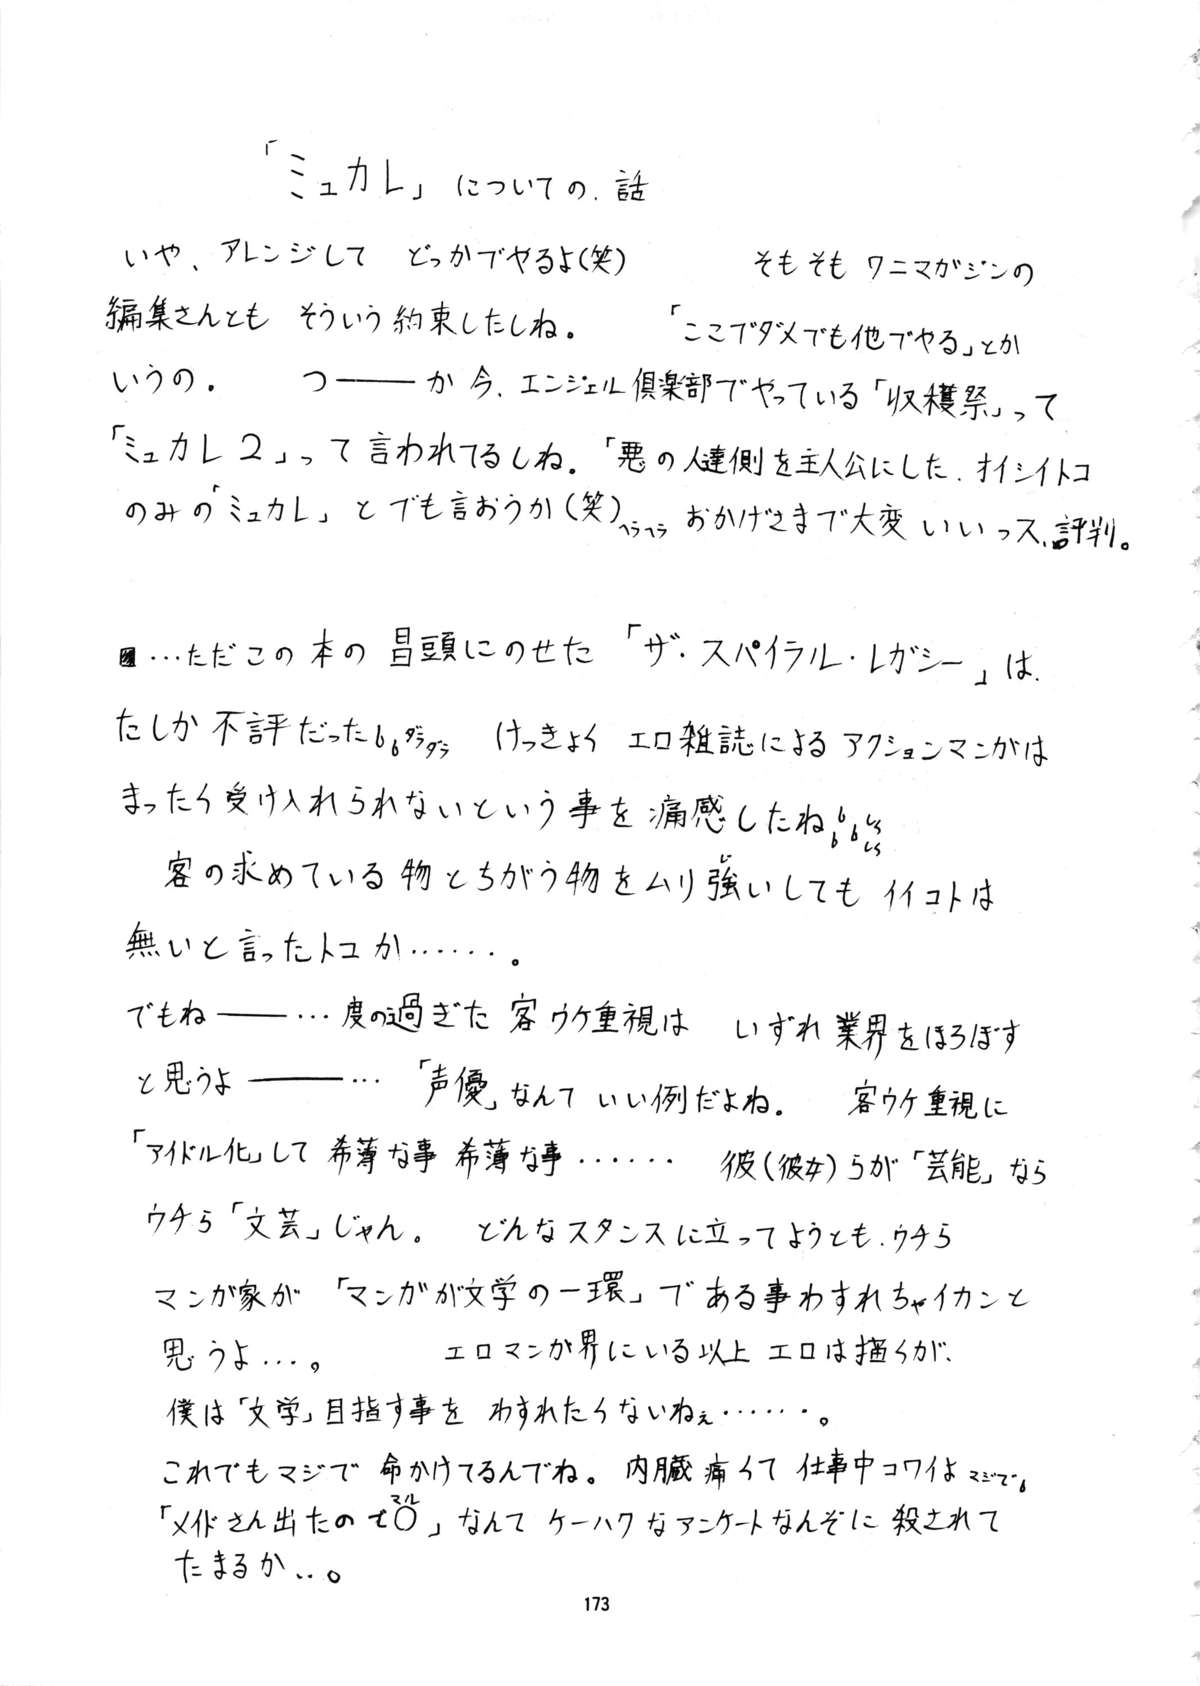 「ミュカレ」についての、話
いや、アレンジして どっかでやるよ(笑) そもそも ワニマガジンの
編集さんとも そういう約束したしね。 「ここでダメでも他でやる」とか
いうの。 つ――か 今、エンジェル倶楽部でやっている「収穫祭」って
「ミュカレ2」って言われてるしね。「悪の人達側を主人公にした、オイシイトコ
のみの「ミュカレ」とでも言おうか(笑)ヘラヘラ おかげさまで大変 いいっス、評判。
…ただこの本の冒頭にのせた「ザ・スパイラル・レガシー」は、
たしか不評だった ダラダラ けっきょく エロ雑誌によるアクションマンガは
まったく受け入れられないという事を痛感したね
客の求めている物とちがう物をムリ強いしても イイコトは
無いと言ったトコか……。
でもね――… 度の過ぎた客ウケ重視は いずれ業界をほろぼす
と思うよ――… 「声優」なんて いい例だよね。 客ウケ重視に
「アイドル化」して 希薄な事 希薄な事…… 彼(彼女)らが「芸能」なら
ウチら「文芸」じゃん。 どんなスタンスに立ってようとも、ウチら
マンガ家が 「マンガが文学の一環」である事わすれちゃイカンと
思うよ…。 エロマンガ界にいる以上 エロは描くが、
僕は「文学」目指す事を わすれたくないねぇ……。
これでもマジで 命かけてるんでね。内臓痛くて 仕事中コワイよ マジで
「メイドさん出たので〇マル」なんて ケーハクなアンケートなんぞに 殺されて
たまるか…。
173